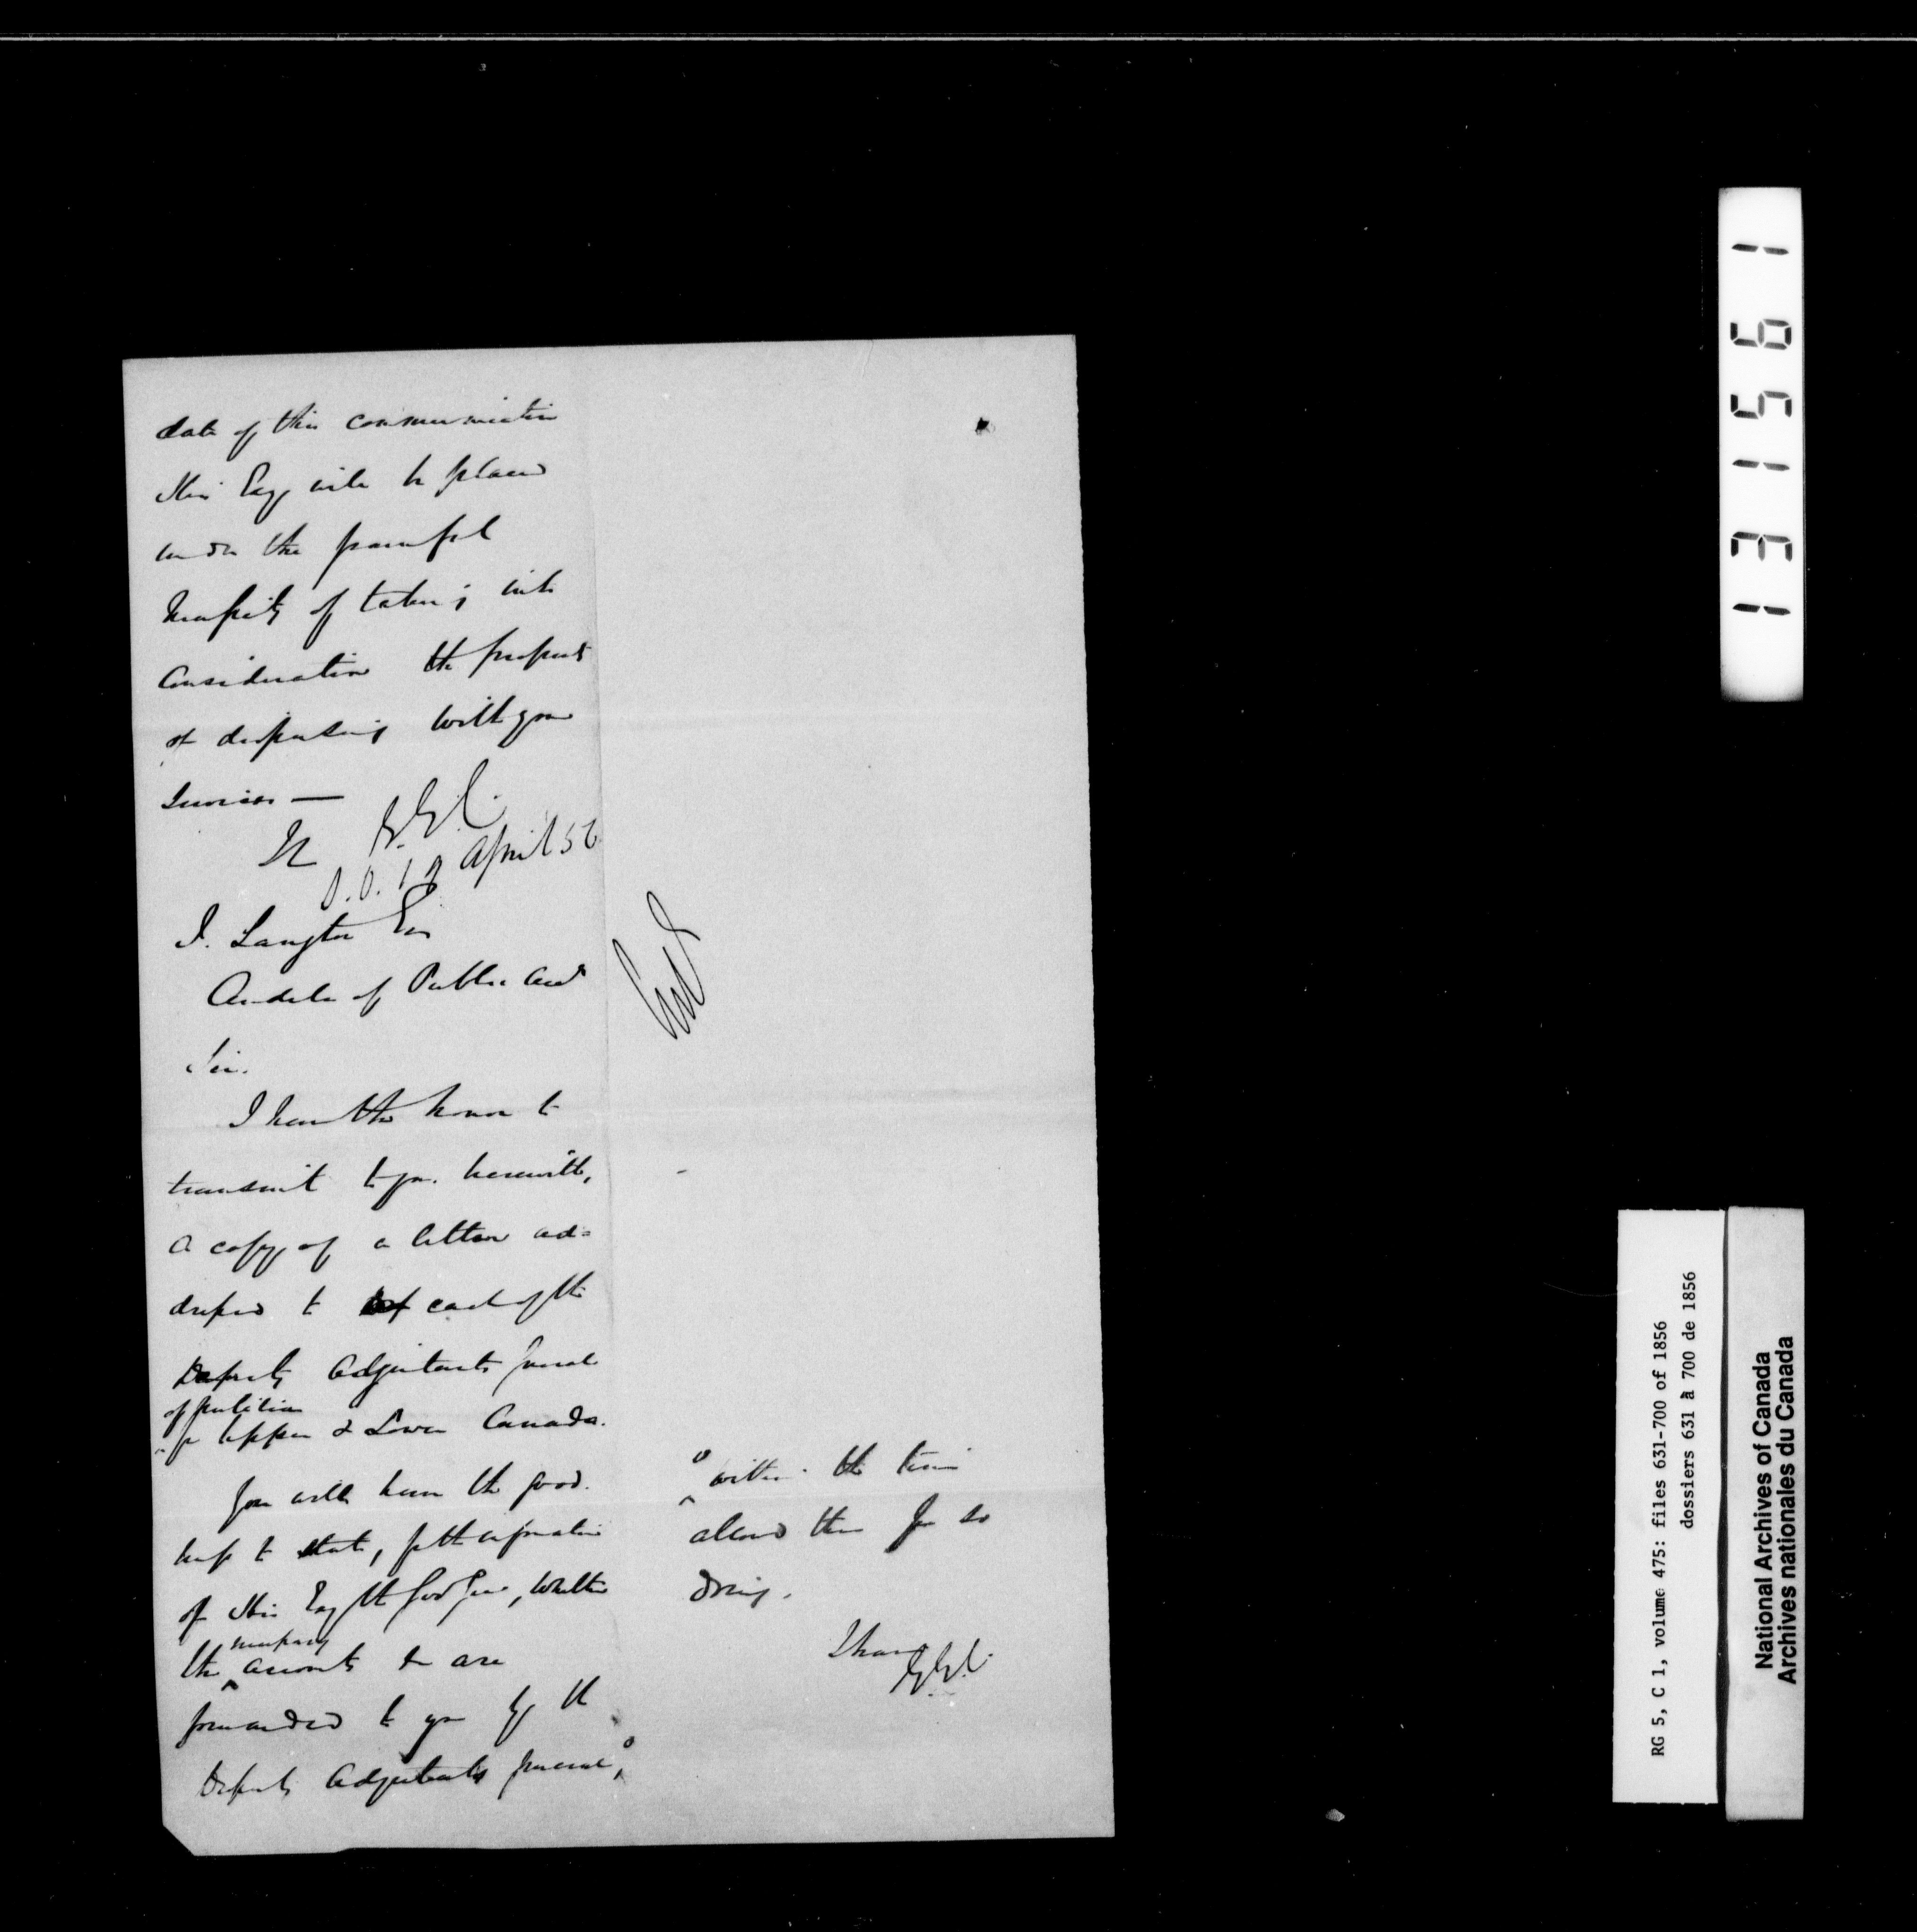 date of this communication
His Excy will be placed
under the painful
necessity of taking into
consideration the propriety
of dispensing with your
services —
E.A.
S.O. 19 April 56
J. Langton Esq
Auditor of Public Acct
Sir.
I have the honor to
transmit to you herewith,
a copy of a letter ad=
dressed to each of the
Deputy Adjutants General
of militia
for Upper & Lower Canada.
You will have the good
ness to state, for the information
of His Excy the Gov Gen, whether
necessary
the accounts are
forwarded to you by the
Deputy Adjutants General,
within the time
allowed them for so
doing.
I have
131561
RG 5, C 1, volume 475: files 631-700 of 1856
dossiers 631 à 700 de 1856
National Archives of Canada
Archives nationales du Canada